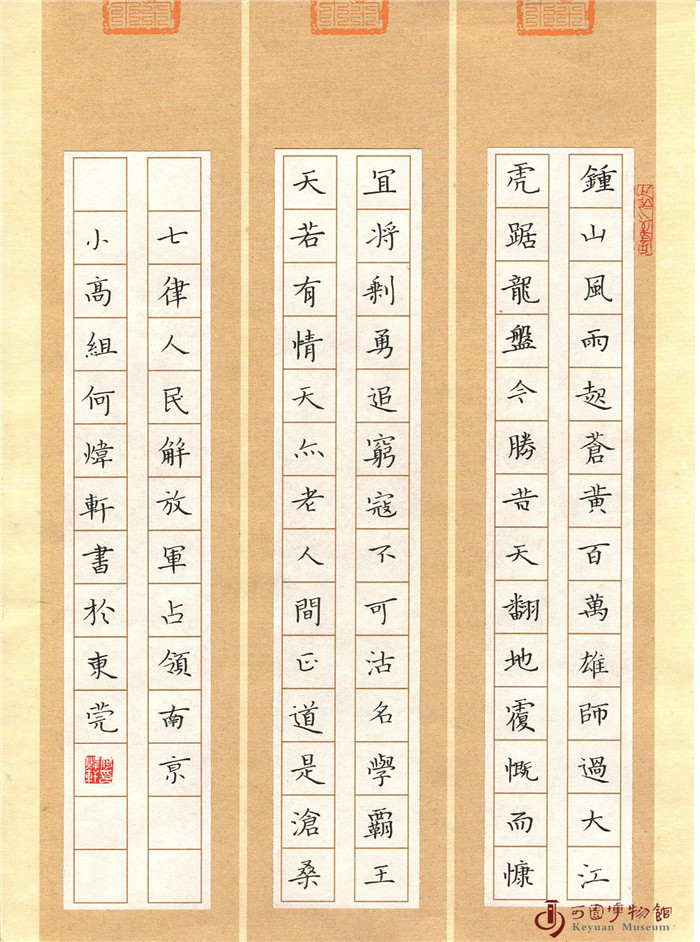 鍾山風雨起蒼黃百萬雄師過大江
虎踞龍盤今勝昔天翻地覆慨而慷
冝将剩勇追窮寇不可沽名學霸王
天若有情天亦老人間正道是滄桑
七律人民解放軍占領南亰
小髙組何煒軒書於東莞
可園博物館
Keyuan Museum